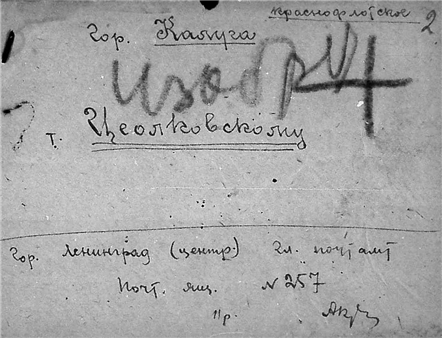 краснофлотское 2
Гор. Калуга
изобр
т. Цеолковскому
Гор. Ленинград (центр.) Гл. почтамт
Почт. ящ. N 257